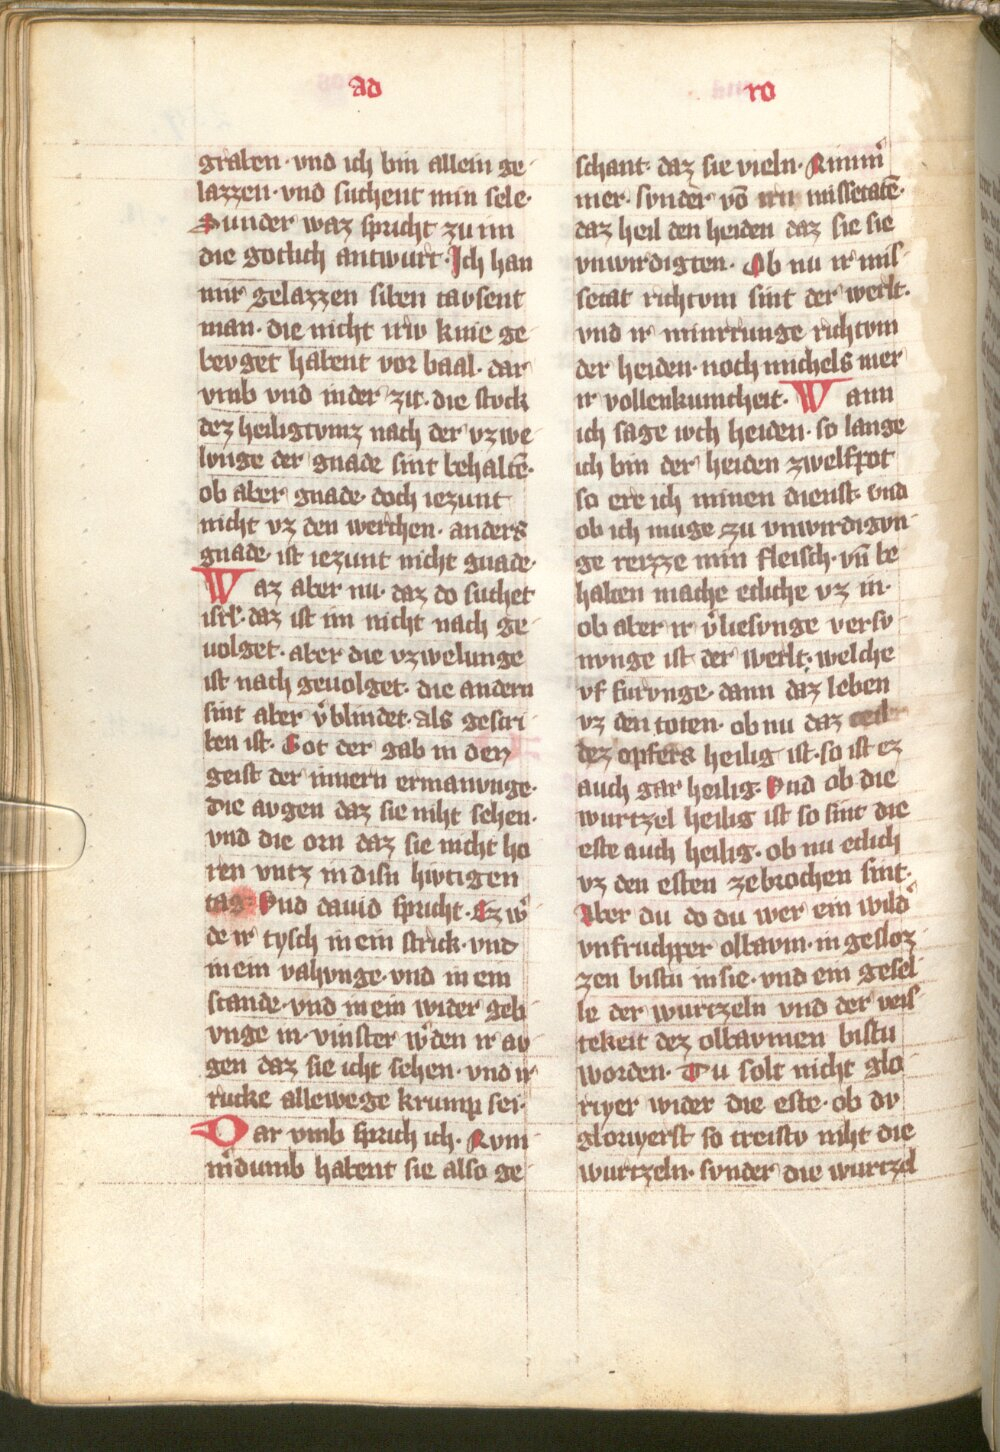 ad
ro
graben · vnd ich bin allein ge
lazzen · vnd suchent min sele ·
Sunder waz spricht zu im
die gotlich antwurt · Ich han
mir gelazzen siben tavsent
man · die nicht irw knie ge
bevget habent vor baal · dar
vmb vnd in der zit · die stvck
dez heiligtvmz nach der vzwe
lvnge der gnade sint behaltē ·
ob aber gnade · doch iezunt
nicht vz den werchen · anders
gnade · ist iezunt nicht gnade ·
Waz aber nu · daz do suchet
isrl̄ · daz ist im nicht nach ge
uolget · aber die vzwelunge
ist nach geuolget · die andern
sint aber v̾blindet · als gescri
ben ist · Got der gab in den
geist der innern ermanvnge ·
die avgen daz sie niht sehen ·
vnd die orn daz sie nicht ho
ren vntz in disn hiwtigen
tag · Vnd dauid spricht · Ez w̾
de ir tysch in ein strick · vnd
in ein vahvnge · vnd in ein
scande · vnd in ein wider geb
vnge in · vinster w̾den ir av
gen daz sie icht sehen · vnd ir
rucke allewege krump sei ·
Dar vmb sprich ich · Nvm
m̾dumb habent sie also ge
schant · daz sie vieln · Nimm̾
mer · svnder vō irn missetatē ·
daz heil den heiden daz sie sie
vnwirdigten · Ob nu ir mis
setat richtvm sint der werlt ·
vnd ir minrrunge richtvm
der heiden · noch michels mer
ir vollenkumcheit · Wann
ich sage iwch heiden · so lange
ich bin der heiden zwelfpot
so ere ich minen dienst · vnd
ob ich muge zu vnwirdigvn
ge reizze min fleisch · vn̄ be
halten mache etliche vz in ·
ob aber ir v̾liesvnge versv
nvnge ist der werlt; welche
vf furvnge · dann daz leben
vz den toten · ob nu daz teil
dez opfers heilig ist · so ist ez
auch gar heilig · Vnd ob die
wurtzel heilig ist so sint die
este auch heilig · ob nu etlich
vz den esten zebrochen sint ·
Aber du do du wer ein wild̾
vnfruchper olbavm · in gesloz
zen bistu in sie · vnd ein gesel
le der wurtzeln vnd der veis
tekeit dez olbavmen bistu
worden · Du solt nicht glo
riyer wider die este · ob dv
gloriyerst so treistv niht die
wurtzeln · svnder die wurtzel